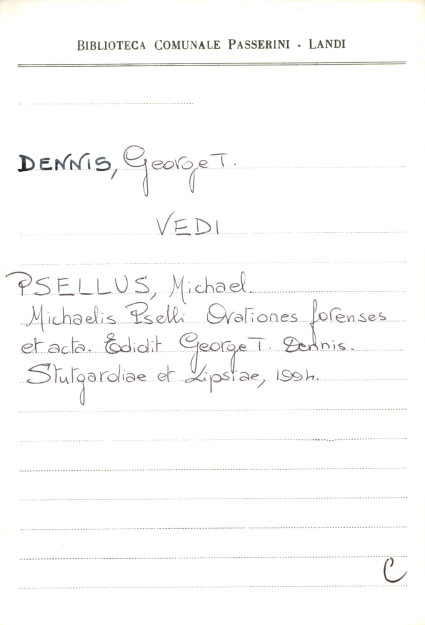 BIBLIOTECA COMUNALE PASSERINI - LANDI
DENNIS, George T.
VEDI
PSELLUS, Michael.
Michaelis Pselli Orationes forenses
et acta. Edidit George T. Dennis.
Stutgardiae et Lipsiae, 1994.
C